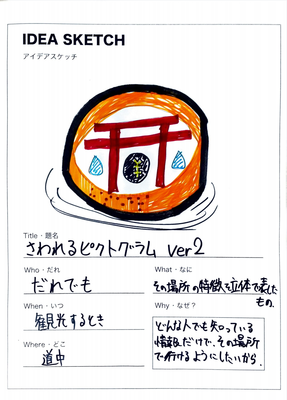 IDEA SKETCH
アイデアスケッチ
Title・題名
さわれるピクトグラム ver2
Who・だれ
だれでも
What・なに
その場所の特徴を立体で表した
もの.
When・いつ
観光するとき
Where・どこ
道中
Why・なぜ？
どんな人でも知っている
情報だけで、その場所
で行けるようにしたいから.